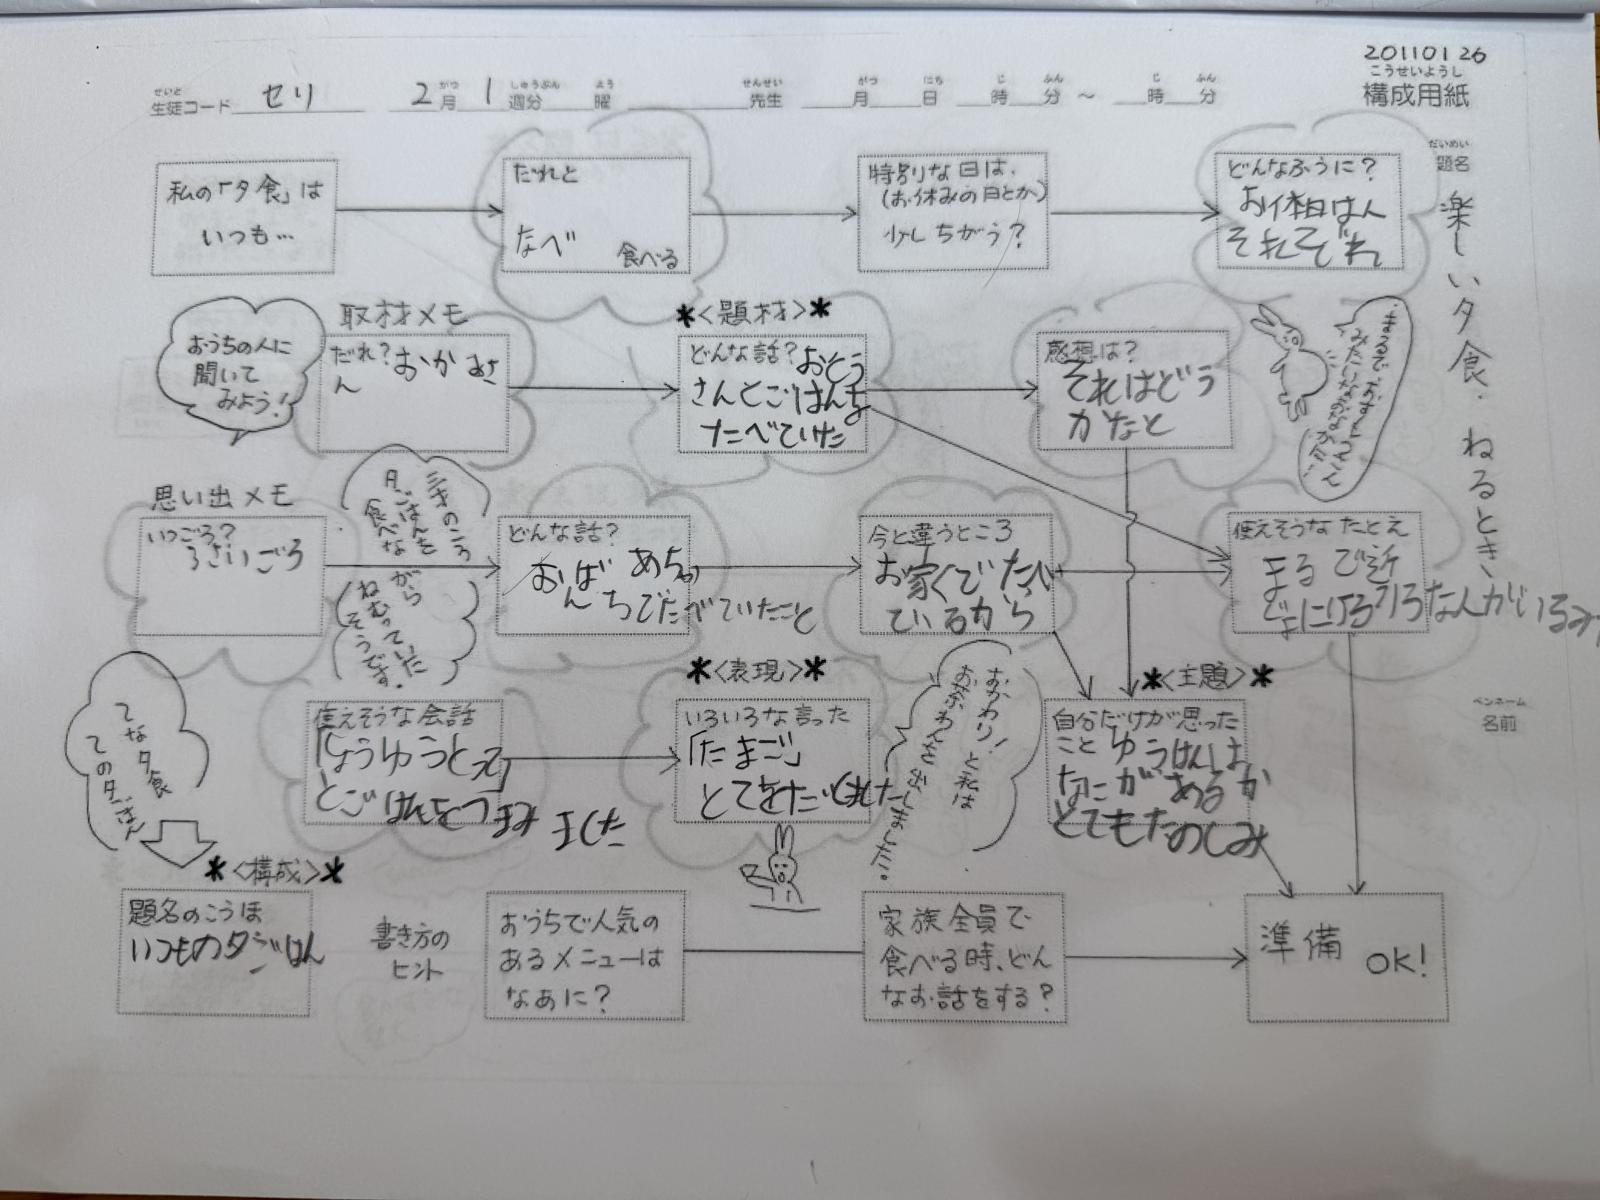 20110126
こうせいようし
構成用紙
せいと がつ しゅうぶん よう せんせい がつ にち じ ふん じ ふん
生徒コード セリ 2月 1週分 曜 先生 月 日 時 分 ～ 時 分
だいめい
題名
楽しい夕食・ねるとき
ペンネーム
名前
私の「夕食」は
いつも…
だれと
なべ
食べる
特別な日は、
(お休みの日とか)
少しちがう?
どんなふうに?
お休日はん
それぞれ
おうちの人に
聞いて
みよう!
取材メモ
だれ?おかあさ
ん
*<題材>*
どんな話?おとう
さんとごはんを
たべていた
感想は?
それはどう
かなと
まるで
みたいな
思い出メモ
いつごろ?
3さいごろ
三才のころ
夕ごはんを
食べな
がら
ねむっていた
そうです。
どんな話?
おばあちゃ
んちでたべていたこと
今と違うところ
お家でたべ
ているから
使えそうなたとえ
まるで近
じょにいろいろなんかいるみ
てな夕食
ての夕ごはん
使えそうな会話
とごはんをつまみました
*<表現>*
いろいろな言った
「たまご」
おかわり!と私は
おちゃわんを出しました。
*<主題>*
自分だけが思った
こと ゆうはんは
なにがあるか
とてもたのしみ
*<構成>*
題名のこうほ
いつもの夕ごはん
書き方の
ヒント
おうちで人気の
あるメニューは
なあに?
家族全員で
食べる時、どん
なお話をする?
準備 OK!